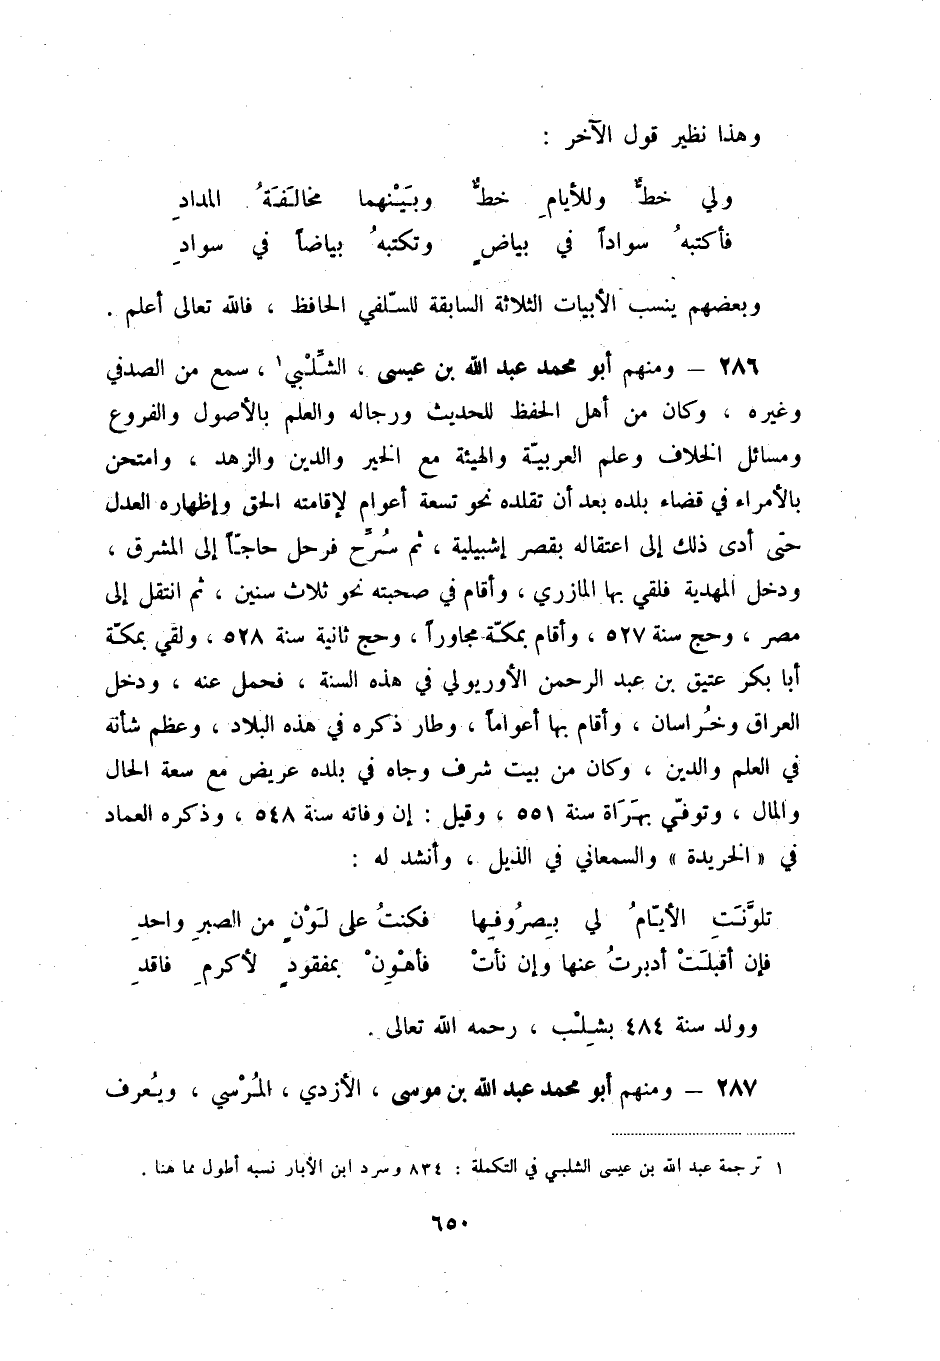 وهذا نظير قول الآخر :
ولي خطٌّ وللأيامِ خطٌّ وبَيْنهما مخالَفَةُ المدادِ
فأكتبهُ سواداً في بياضٍ وتكتبهُ بياضاً في سوادِ
وبعضهم ينسب الأبيات الثلاثة السابقة للسّلفي الحافظ ، فالله تعالى أعلم .
٢٨٦ – ومنهم أبو محمد عبد الله بن عيسى ، الشِّلْبي١ ، سمع من الصدفي
وغيره ، وكان من أهل الحفظ للحديث ورجاله والعلم بالأصول والفروع
ومسائل الخلاف وعلم العربيّة والهيئة مع الخير والدين والزهد ، وامتحن
بالأمراء في قضاء بلده بعد أن تقلده نحو تسعة أعوام لإقامته الحق وإظهاره العدل
حتى أدى ذلك إلى اعتقاله بقصر إشبيلية ، ثم سُرِّح فرحل حاجّاً إلى المشرق ،
ودخل المهدية فلقي بها المازري ، وأقام في صحبته نحو ثلاث سنين ، ثم انتقل إلى
مصر ، وحج سنة ٥٢٧ ، وأقام بمكّة مجاوراً ، وحج ثانية سنة ٥٢٨ ، ولقي بمكّة
أبا بكر عتيق بن عبد الرحمن الأوريولي في هذه السنة ، فحمل عنه ، ودخل
العراق وخُراسان ، وأقام بها أعواماً ، وطار ذكره في هذه البلاد ، وعظم شأنه
في العلم والدين ، وكان من بيت شرف وجاه في بلده عريض مع سعة الحال
والمال ، وتوفّي بهَرَاة سنة ٥٥١ ، وقيل : إن وفاته سنة ٥٤٨ ، وذكره العماد
في « الخريدة » والسمعاني في الذيل ، وأنشد له :
تلوَّنَتِ الأيّامُ لي بصروفها فكنتُ على لَوْنٍ من الصبرِ واحدِ
فإن أقبلَتْ أدبرتُ عنها وإن نأتْ فأهْوِنْ بمفقودٍ لأكرمِ فاقدِ
وولد سنة ٤٨٤ بشِلْب ، رحمه الله تعالى .
٢٨٧ – ومنهم أبو محمد عبد الله بن موسى ، الأزدي ، المُرْسي ، ويُعرف
١ ترجمة عبد الله بن عيسى الشلبي في التكملة : ٨٣٤ وسرد ابن الأبار نسبه أطول مما هنا .
٦٥٠